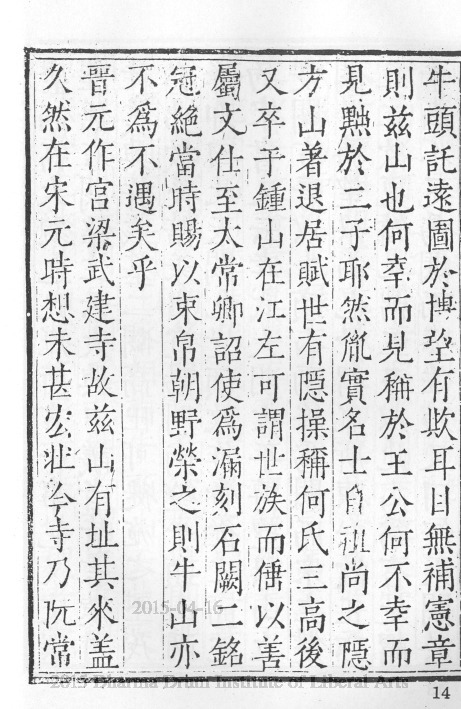 牛頭託遠圖於博望有欺耳目無補憲章
則兹山也何幸而見稱於王公何不幸而
見黜於二子耶然胤實名士自祖尚之隱
方山著退居賦世有隱操稱何氏三高後
又卒于鍾山在江左可謂世族而倕以善
屬文仕至太常卿詔使爲漏刻石闕二銘
冠絶當時賜以束帛朝野榮之則牛山亦
不爲不遇矣乎
晉元作宫梁武建寺故兹山有址其來盖
久然在宋元時想未甚宏壯今寺乃阮常
2015-04-16
2015 Dharma Drum Institute of Liberal Arts
14